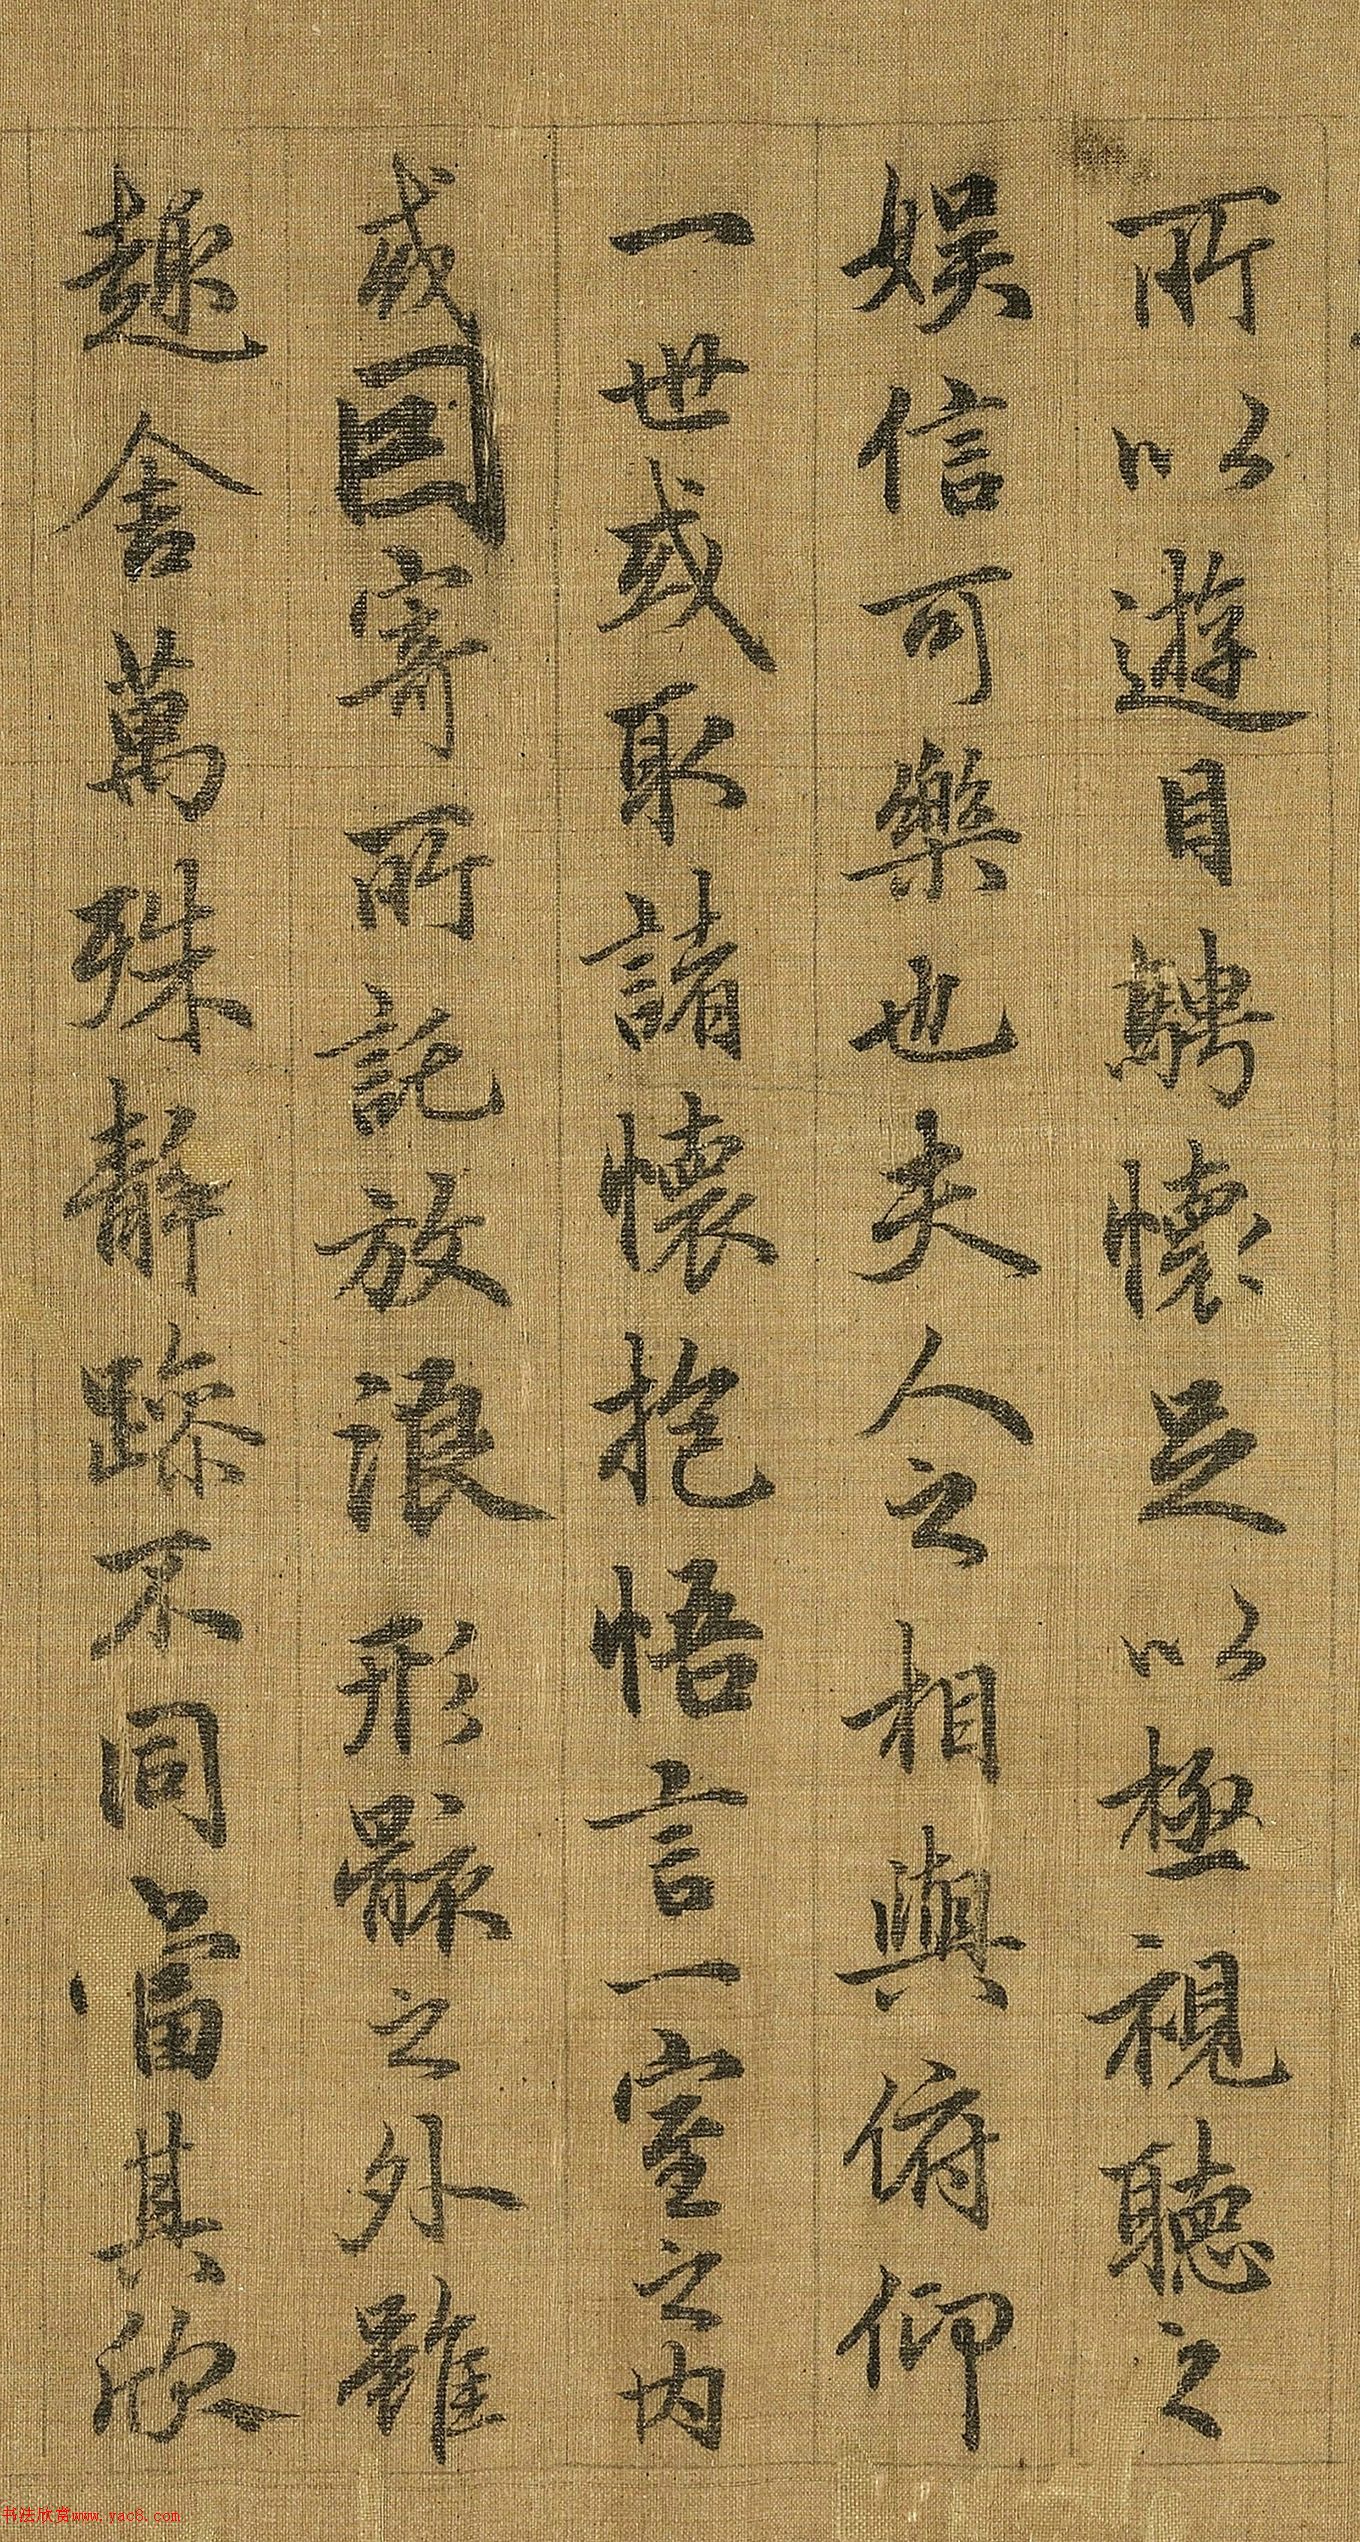 所以遊目騁懷足以極視聽之
娛信可樂也夫人之相與俯仰
一世或取諸懷抱悟言一室之內
或因寄所託放浪形骸之外雖
趣舍萬殊靜躁不同當其欣
书法欣赏www.yac8.com